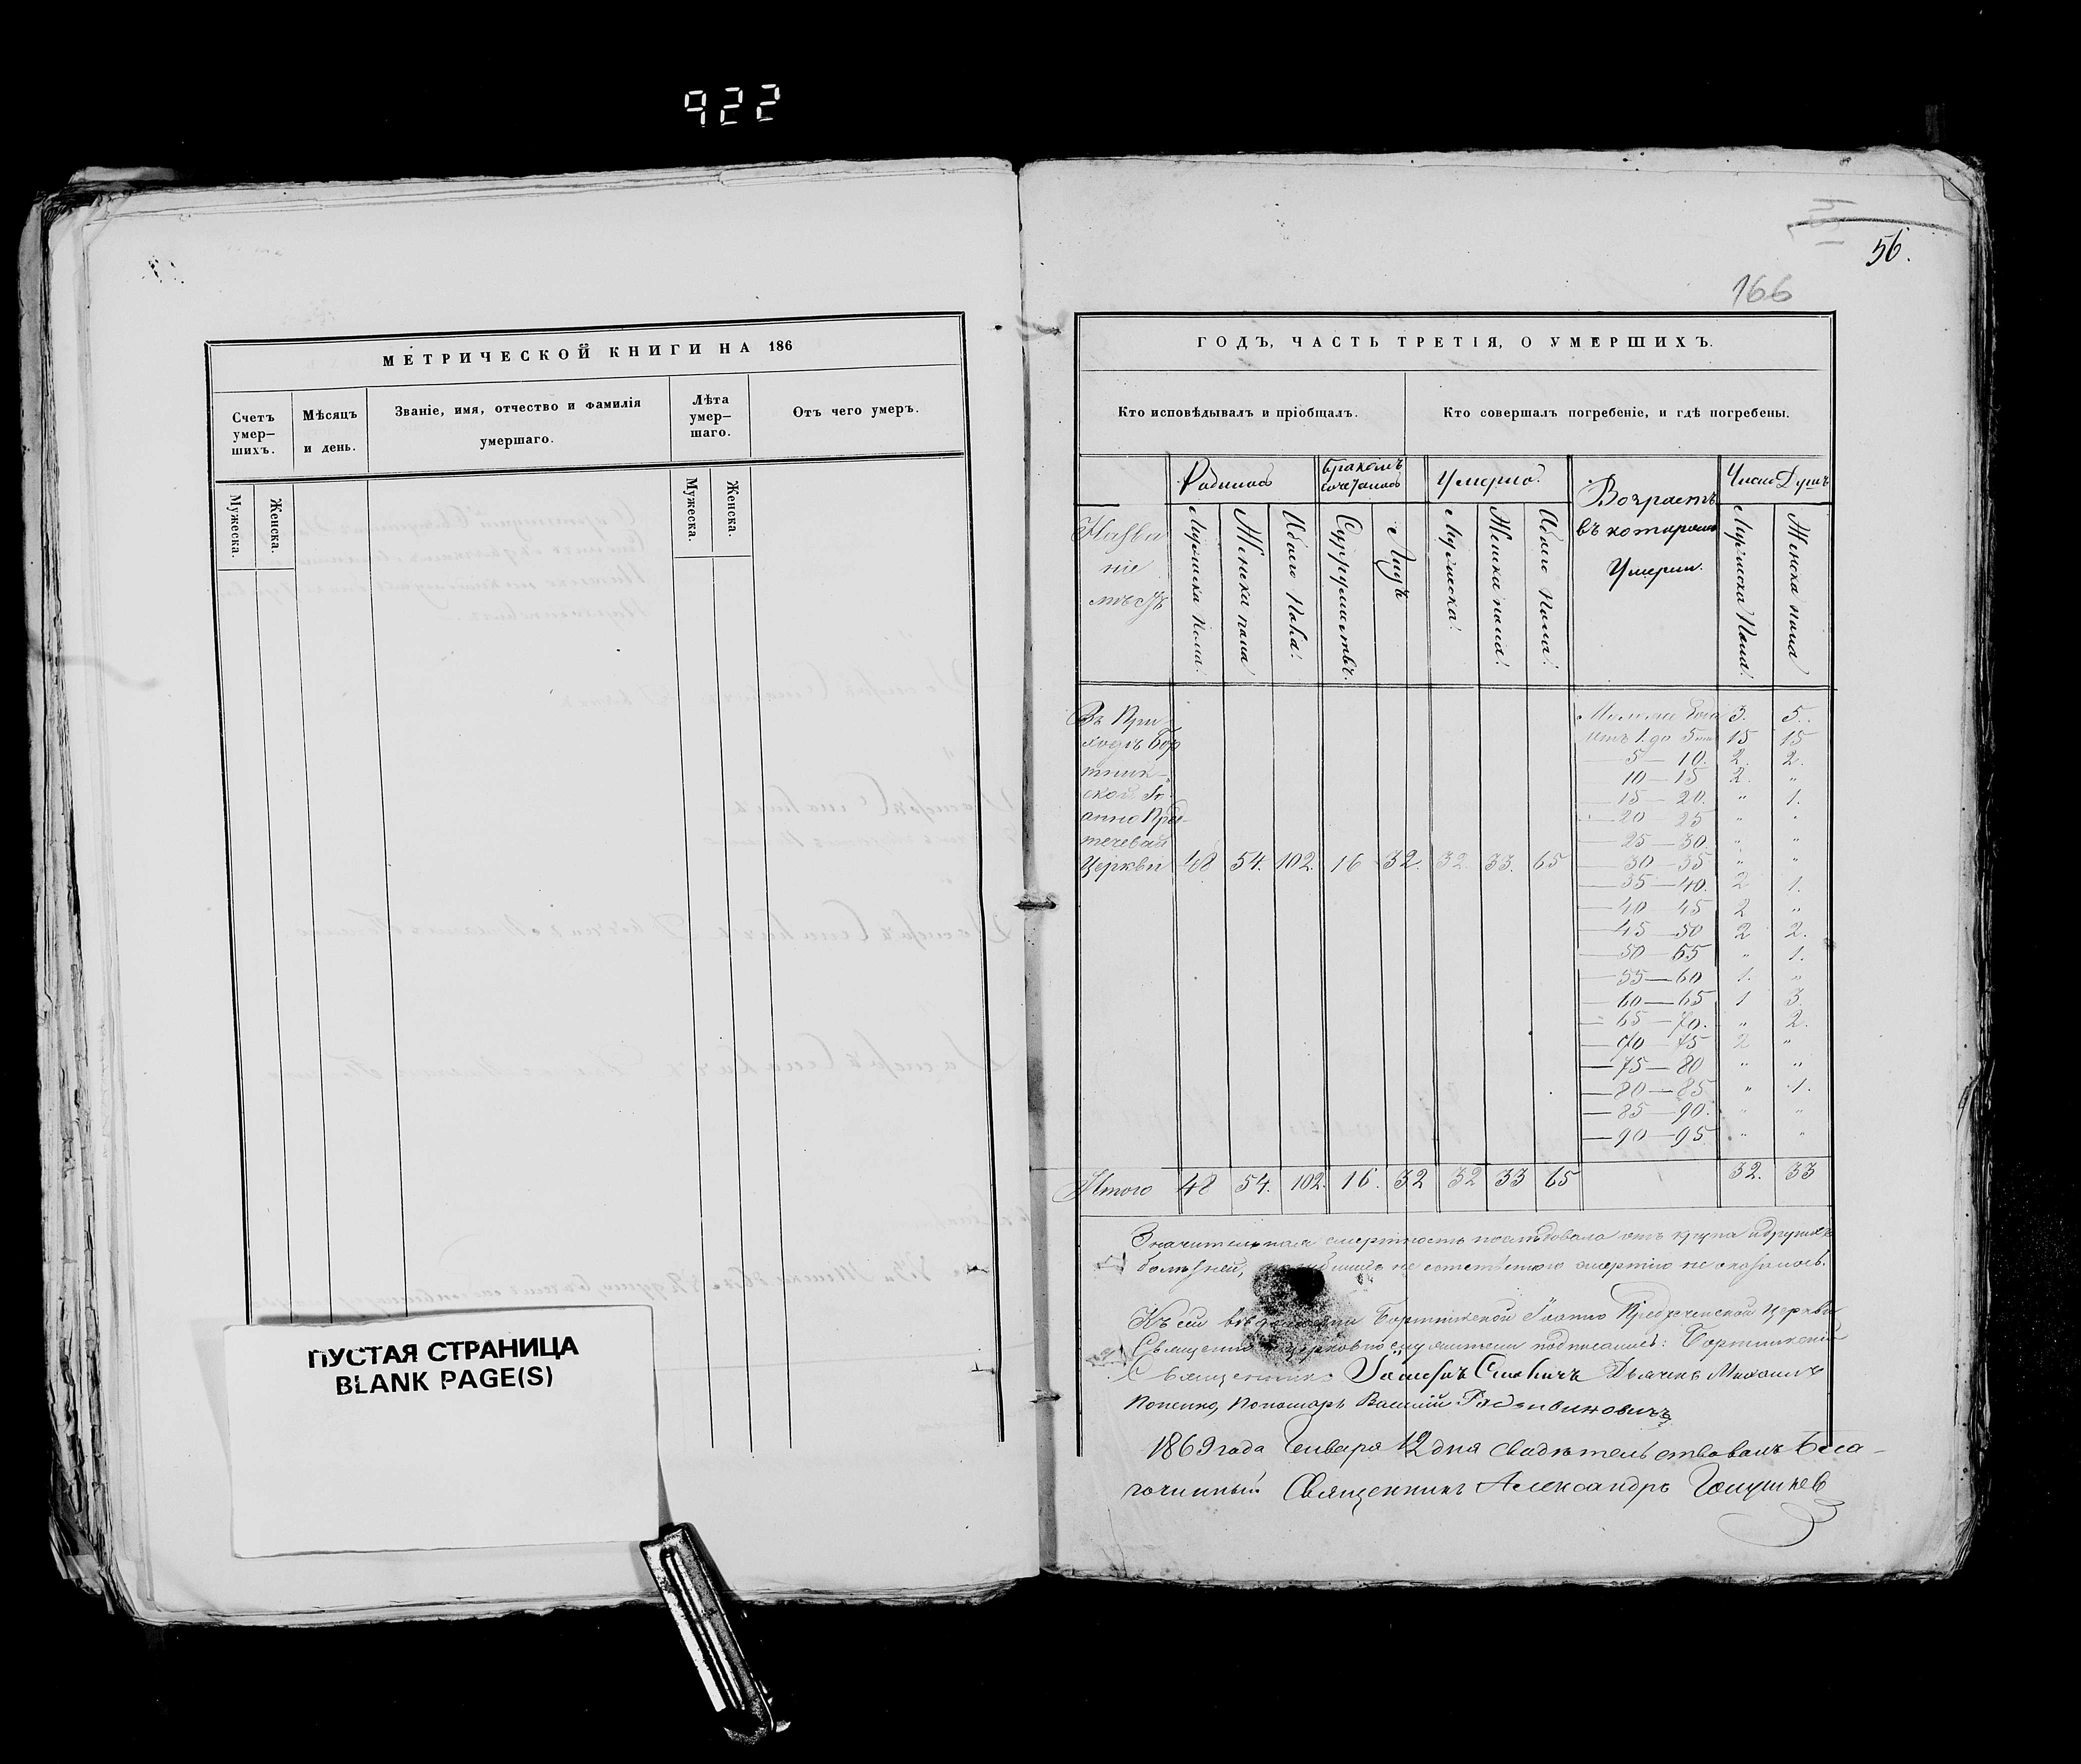 922
56.
166
МЕТРИЧЕСКОЙ КНИГИ НА 186
Счетъ умер-шихъ.
Мѣсяцъ и день.
Званіе, имя, отчество и фамилія умершаго.
Лѣта умер-шаго.
Отъ чего умеръ.
Мужеска.
Женска.
Мужеска.
Женска.
ПУСТАЯ СТРАНИЦА
BLANK PAGE(S)
ГОДЪ, ЧАСТЬ ТРЕТІЯ, О УМЕРШИХЪ.
Кто исповѣдывалъ и пріобщалъ.
Кто совершалъ погребеніе, и гдѣ погребены.
Назва
ніе
мѣстъ
Родилось
Бракомъ
сочеталось
Умерло.
Возрастъ
въ которомъ
Умерли.
Число Душъ
Мужеска Пола
Женска пола
Обоего Пола
Супружествъ.
Лицъ
Мужеска
Женска пола
Обоего Пола
Мужеска Пола
Женска пола
Въ При-
ходѣ Бор
тник-
ской Іо
анно Пред
течевой
Церкви 48 54. 102. 16 32. 32 33. 65
3. 5.
отъ 1. до 5 15 15
5 — 10. 2. 2.
10 — 15 2. „
15 — 20. „ 1.
20 — 25 „ „
25 — 30. „ „
30 — 35 „ „
35 — 40. 2 1.
40 — 45 2 „
45 — 50 2 2.
50 — 55 „ 1.
55 — 60 1. „
60 — 65 1 3.
65 — 70. „ 2.
70 — 75 2 „
75 — 80 „ „
80 — 85 „ 1.
85 — 90. „ „
90 — 95 „ „
Итого 48 54. 102. 16. 32 32 33 65 32. 33
Значительная смертность послѣдовала отъ крупа и другихъ
болѣзней, не естественною смертію не оказалось.
Къ сей Бортникской Іоанно Предтеченской Церкви
Священно церковнослужители подписались: Бортникский
Священникъ Іосифъ Дьячекъ Михаилъ
Попенко, Пономарь Василій
1869 года Генваря 12 дня Свидѣтельствовалъ Бла-
гочинный Священникъ Александръ